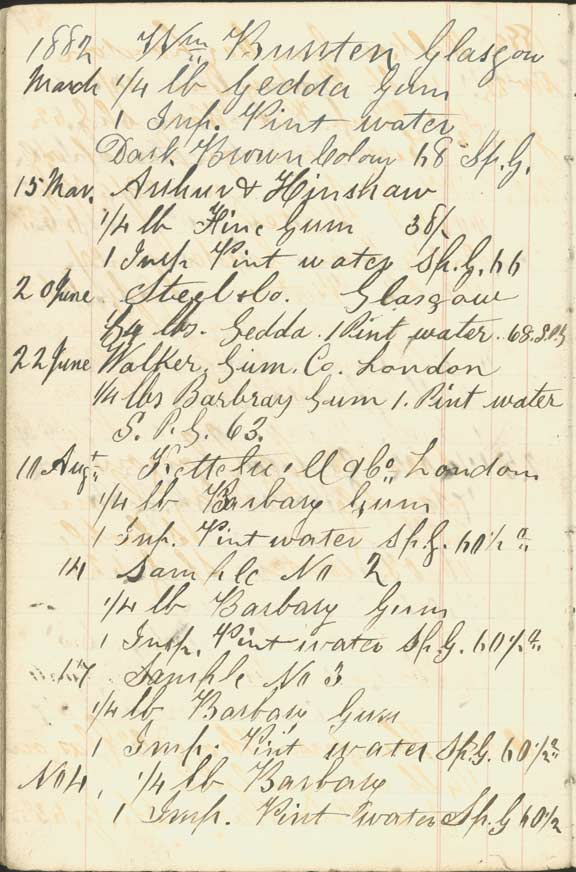 1882 Wm Bunten Glasgow
March 1/4 lb Gedda Gum
1 Imp. Pint water
Dark Brown Colour 68 Sp.G.
15 Mar. Arthur & Hinshaw
1/4 lb Fine Gum 38/
1 Imp Pint water Sp.G. 66
20 June Steel & Co. Glasgow
lbs. Gedda. 1 Pint water. 68. S.P.G
22 June Walker Gum. Co. London
1/4 lbs Barbray Gum 1. Pint water
S. P. G. 63.
10 Augt. & Co. London
1/4 lb Barbary Gum
1 Imp. Pint water Sp.G. 60 1/2 "
14 Sample No 2
1/4 lb Barbary Gum
1 Imp. Pint water Sp.G. 60 1/2 ".
17 Sample No 3
1/4 lb Barbary Gum
1 Imp. Pint water Sp.G. 60 1/2 "
No 4, 1/4 lb Barbary
1 Imp. Pint water Sp.G 60 1/2